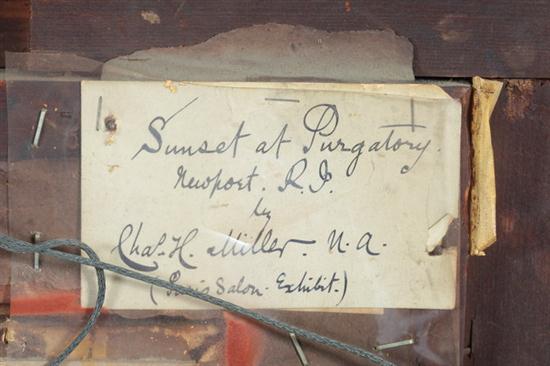 Sunset at Purgatory.
Newport. R.I.
by
Chas. H. Miller. N.A.
(Paris Salon. Exhibit.)